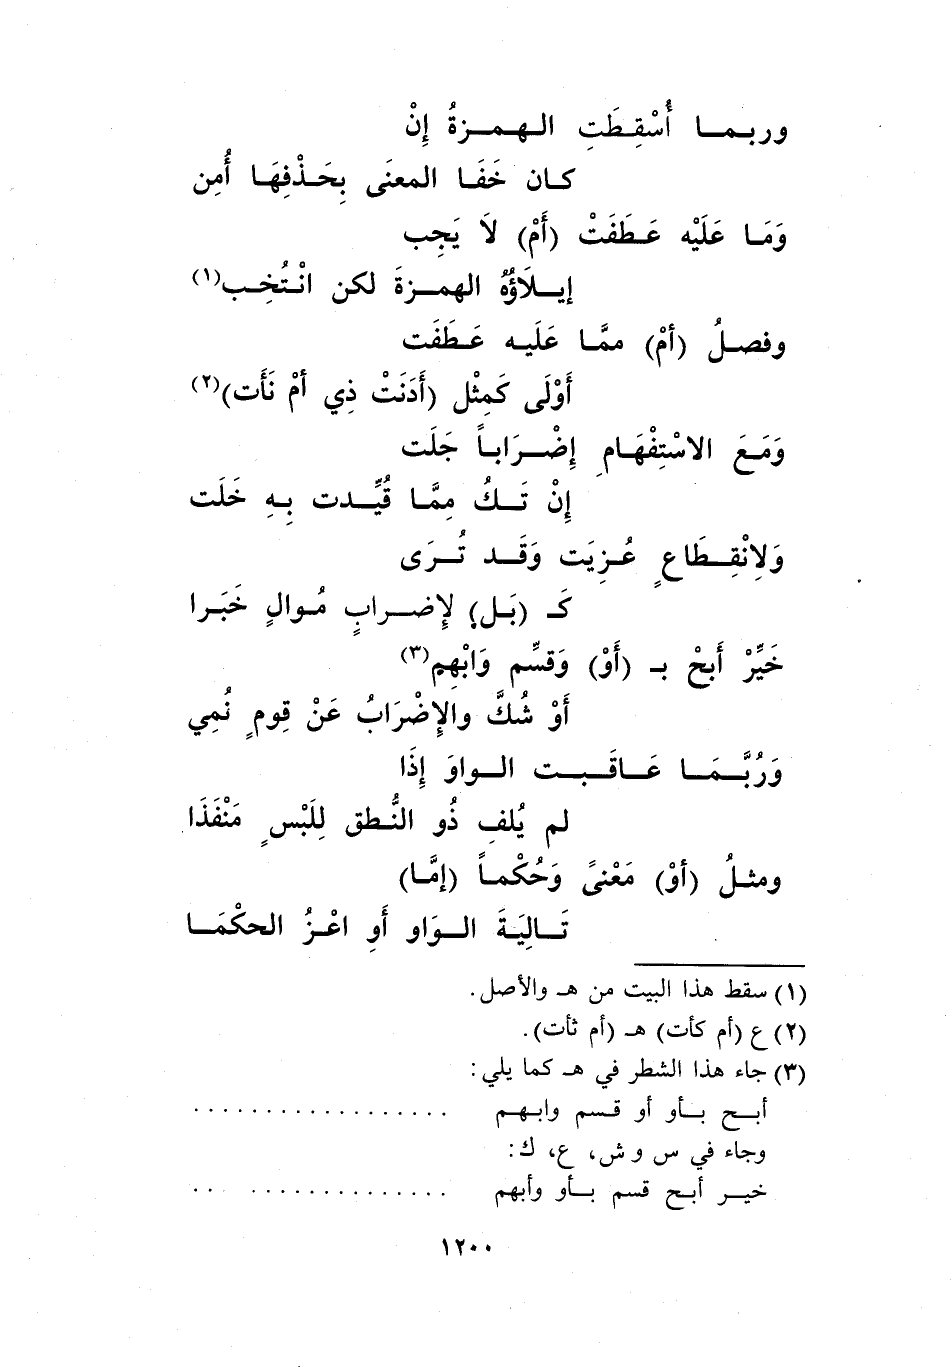 وربما أُسْقِطَتِ الهمزةُ إِنْ
كان خَفَا المعنَى بِحَذْفِهَا أُمِن
وَمَا عَلَيْه عَطَفَتْ (أَمْ) لاَ يَجِب
إيلَاؤُهُ الهمزةَ لكن انْتُخِب(١)
وفصلُ (أمْ) ممَّا عَلَيه عَطَفَت
أَوْلَى كَمِثْل (أَدَنَتْ ذِي أمْ نَأَت)(٢)
وَمَعَ الاسْتِفْهَامِ إِضْرَاباً جَلَت
إِنْ تَكُ مِمَّا قُيِّدت بِهِ خَلَت
وَلِانْقِطَاعٍ عُزِيَت وَقَد تُرَى
كَـ (بَل) لِإِضرابٍ مُوالٍ خَبَرا
خَيِّرْ أَبحْ بـ (أَوْ) وَقسِّم وَابْهِم(٣)
أَوْ شُكَّ والإِضْرَابُ عَنْ قِومٍ نُمِي
وَرُبَّمَا عَاقَبت الواوَ إِذَا
لم يُلفِ ذُو النُّطق لِلَبْسٍ مَنْفَذَا
ومثلُ (أوْ) مَعْنىً وَحُكْماً (إمَّا)
تَالِيَةَ الوَاو أَوِ اعْزُ الحكْمَا
(١) سقط هذا البيت من هـ والأصل.
(٢) ع (أم كأت) هـ (أم ثأت).
(٣) جاء هذا الشطر في هـ كما يلي:
أبح بأو أو قسم وابهم . . . . . . . . . . . . . . . . . .
وجاء في س و ش، ع، ك:
خير أبح قسم بأو وأبهم . . . . . . . . . . . . . . . .
١٢٠٠